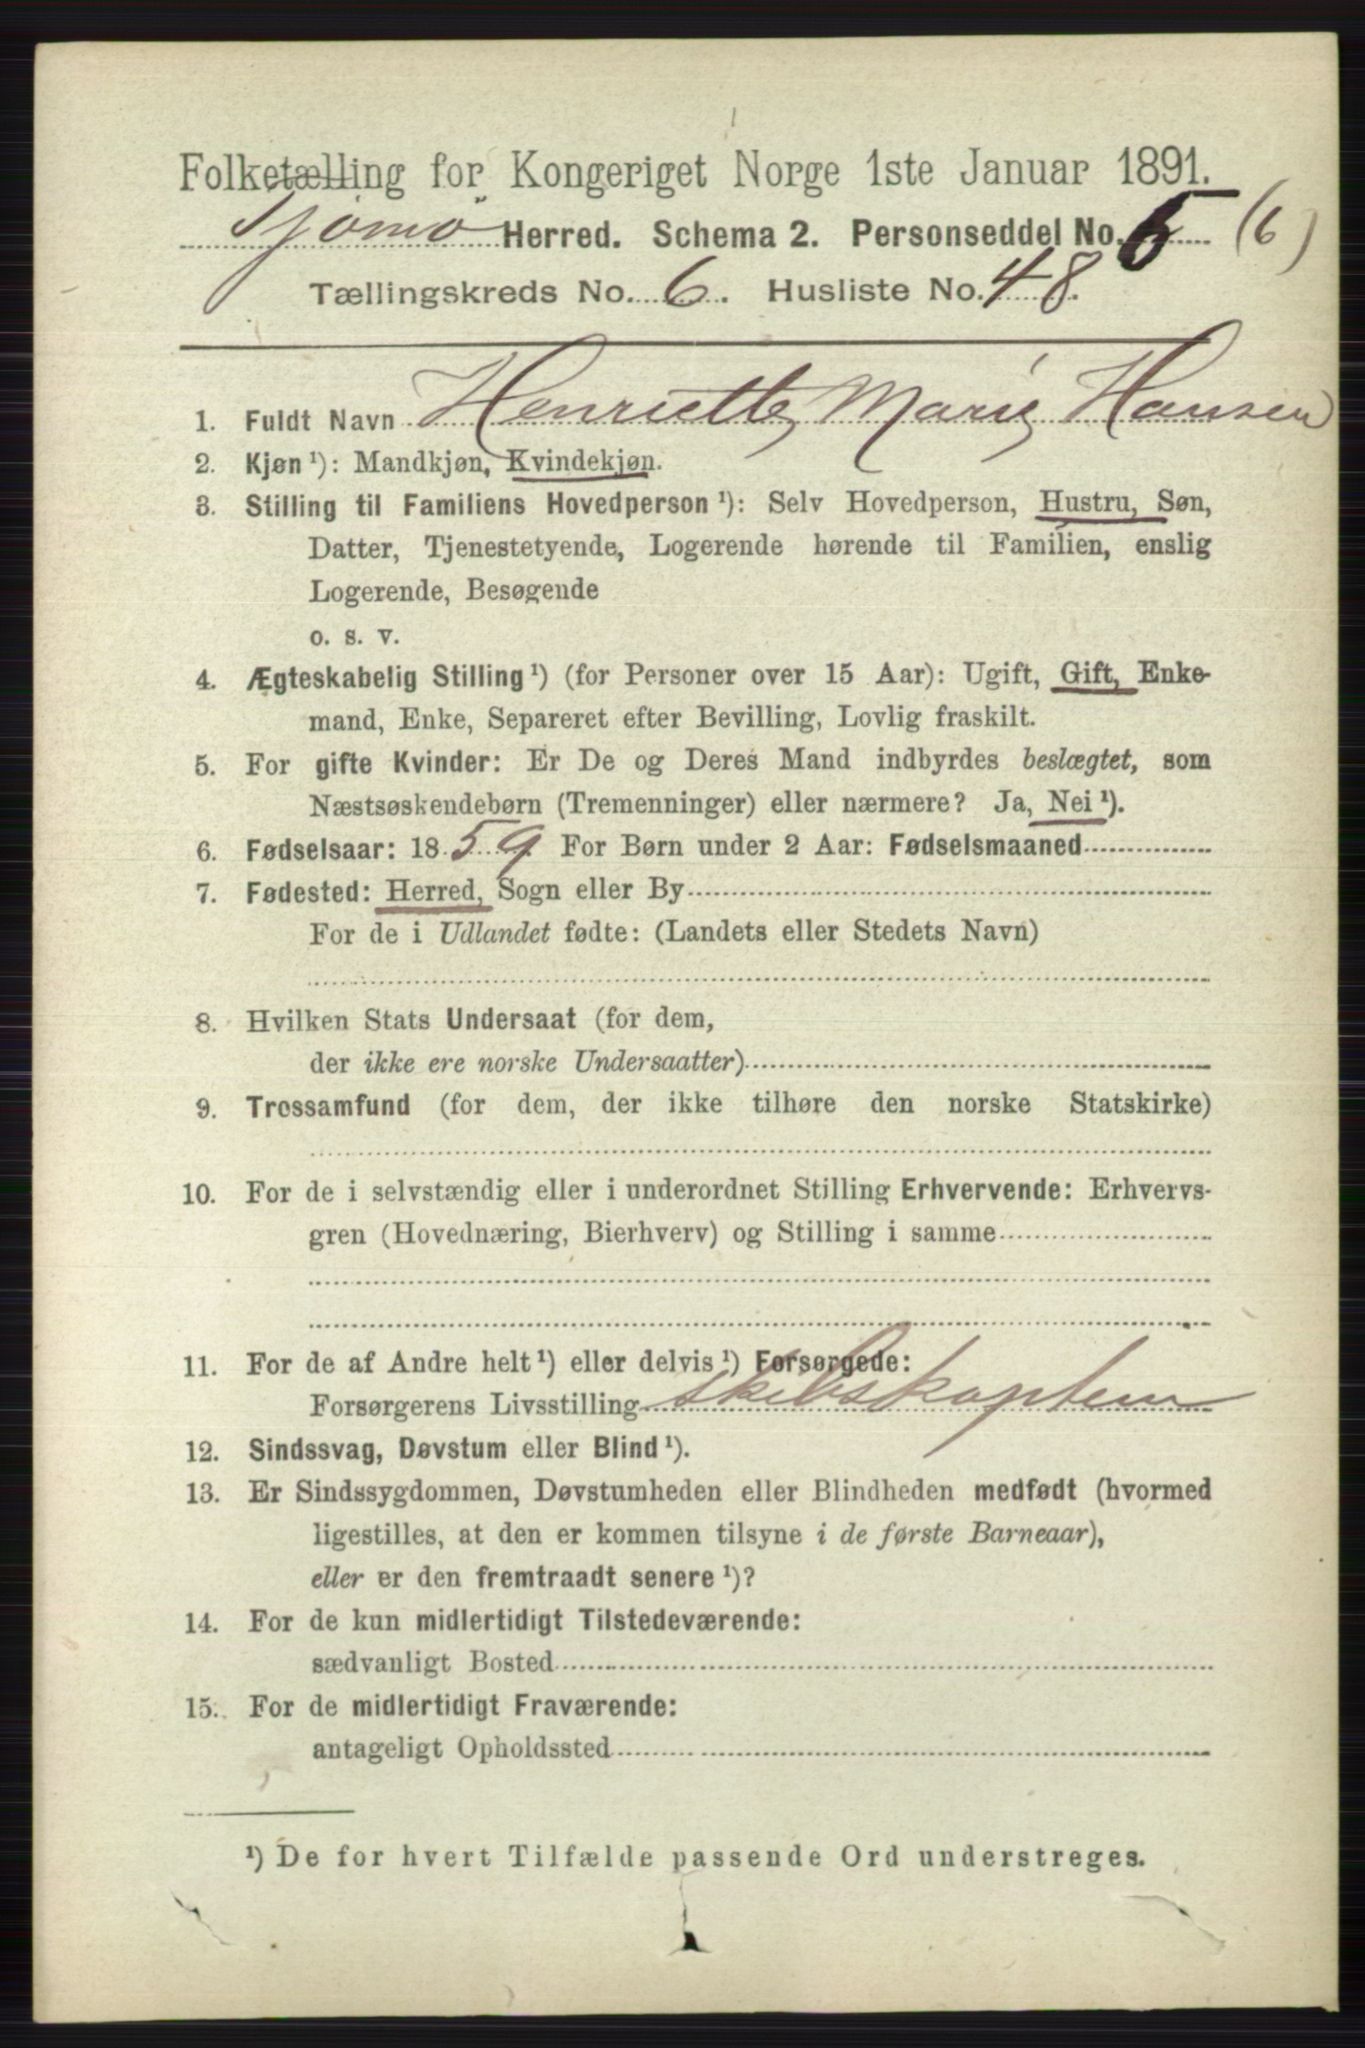 Folketælling for Kongeriget Norge 1ste Januar 1891.
Tjømø Herred. Schema 2. Personseddel No. 6 (6)
Tællingskreds No. 6. Husliste No. 48.
1. Fuldt Navn Henriette Marie Hansen
2. Kjøn ¹): Mandkjøn, Kvindekjøn.
3. Stilling til Familiens Hovedperson ¹): Selv Hovedperson, Hustru, Søn,
Datter, Tjenestetyende, Logerende hørende til Familien, enslig
Logerende, Besøgende
o. s. v.
4. Ægteskabelig Stilling ¹) (for Personer over 15 Aar): Ugift, Gift, Enke-
mand, Enke, Separeret efter Bevilling, Lovlig fraskilt.
5. For gifte Kvinder: Er De og Deres Mand indbyrdes beslægtet, som
Næstsøskendebørn (Tremenninger) eller nærmere? Ja, Nei ¹).
6. Fødselsaar: 1859 For Børn under 2 Aar: Fødselsmaaned
7. Fødested: Herred, Sogn eller By
For de i Udlandet fødte: (Landets eller Stedets Navn)
8. Hvilken Stats Undersaat (for dem,
der ikke ere norske Undersaatter)
9. Trossamfund (for dem, der ikke tilhøre den norske Statskirke)
10. For de i selvstændig eller i underordnet Stilling Erhvervende: Erhvervs-
gren (Hovednæring, Bierhverv) og Stilling i samme
11. For de af Andre helt ¹) eller delvis ¹) Forsørgede:
Forsørgerens Livsstilling Skibskaptein
12. Sindssvag, Døvstum eller Blind ¹).
13. Er Sindssygdommen, Døvstumheden eller Blindheden medfødt (hvormed
ligestilles, at den er kommen tilsyne i de første Barneaar),
eller er den fremtraadt senere ¹)?
14. For de kun midlertidigt Tilstedeværende:
sædvanligt Bosted
15. For de midlertidigt Fraværende:
antageligt Opholdssted
¹) De for hvert Tilfælde passende Ord understreges.